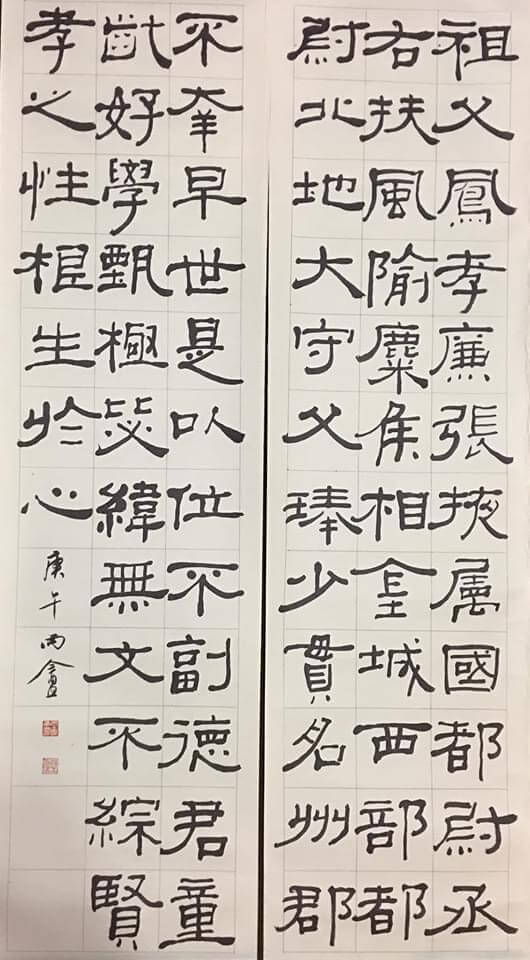 祖父鳳孝廉張掖屬國都尉丞
右扶風隃麋侯相金城西部都
尉北地大守父琫少貫名州郡
不幸早世是以位不副德君童
齔好學甄極毖緯無文不綜賢
孝之性根生於心
庚午雨盦